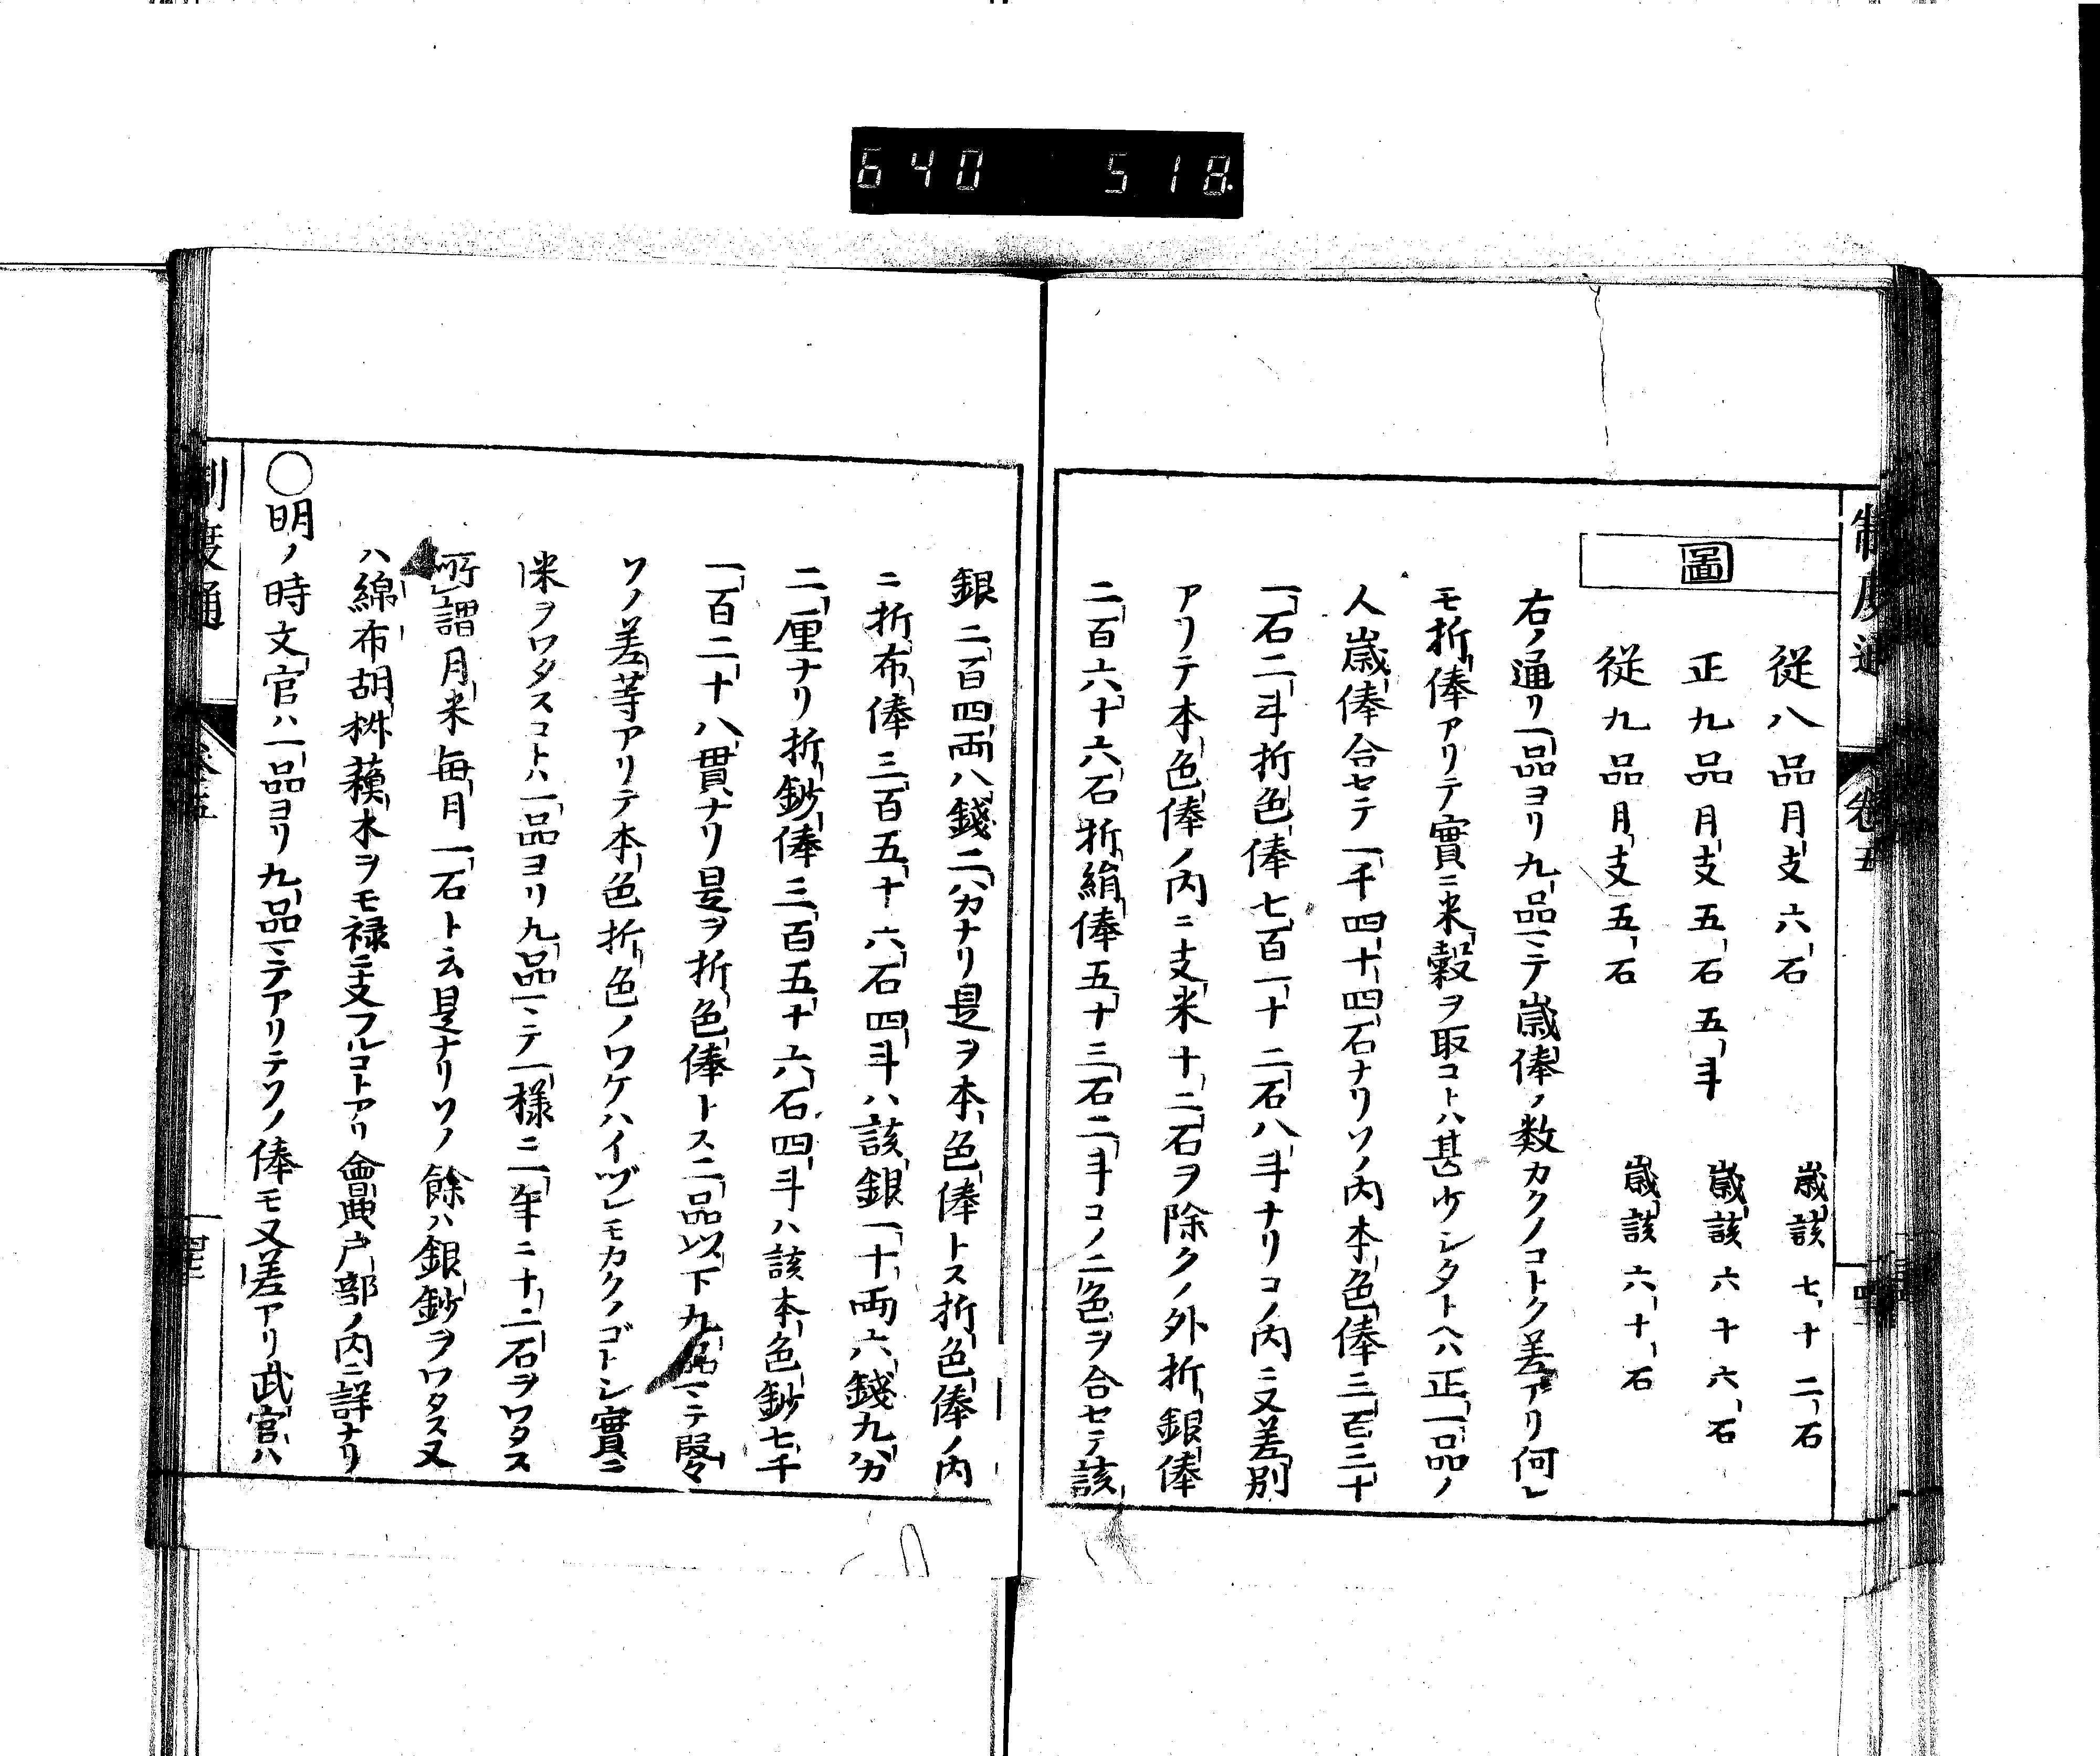 640 518
制度通
卷五
圖
從八品月支六石 歲該七十二石
正九品月支五石五斗 歲該六十六石
從九品月支五石 歲該六十石
右ノ通リ一品ヨリ九品ニテ歲俸ノ数カクノコトク差アリ何レ
モ折俸アリテ實ニ米穀ヲ取コトハ甚少シタトヘハ正一品ノ
人歲俸合セテ一千四十四石ナリソノ内本色俸三百三十
一石二斗折色俸七百一十二石八斗ナリコノ内ニ又差別
アリテ本色俸ノ内ニ支米十二石ヲ除クノ外折銀俸
二百六十六石折絹俸五十三石二斗コノ二色ヲ合セテ該
銀二百四両八錢二分ナリ是ヲ本色俸トス折色俸ノ内
ニ折布俸三百五十六石四斗ハ該銀一十両六錢九分
二厘ナリ折鈔俸三百五十六石四斗ハ該本色鈔七千
一百二十八貫ナリ是ヲ折色俸トス二品以下九品ニテ段々
ソノ差等アリテ本色折色ノワケハイヅレモカクノゴトシ實ニ
米ヲワタスコトハ一品ヨリ九品ニテ一様ニ一年ニ十二石ヲワタス
所謂月米毎月一石ト云是ナリソノ餘ハ銀鈔ヲワタス又
ハ綿布胡椒蘓木ヲモ禄ニ支フルコトアリ會典户部ノ内ニ詳ナリ
○明ノ時文官ハ一品ヨリ九品ニテアリテソノ俸モ又差アリ武官ハ
制度通
卷五